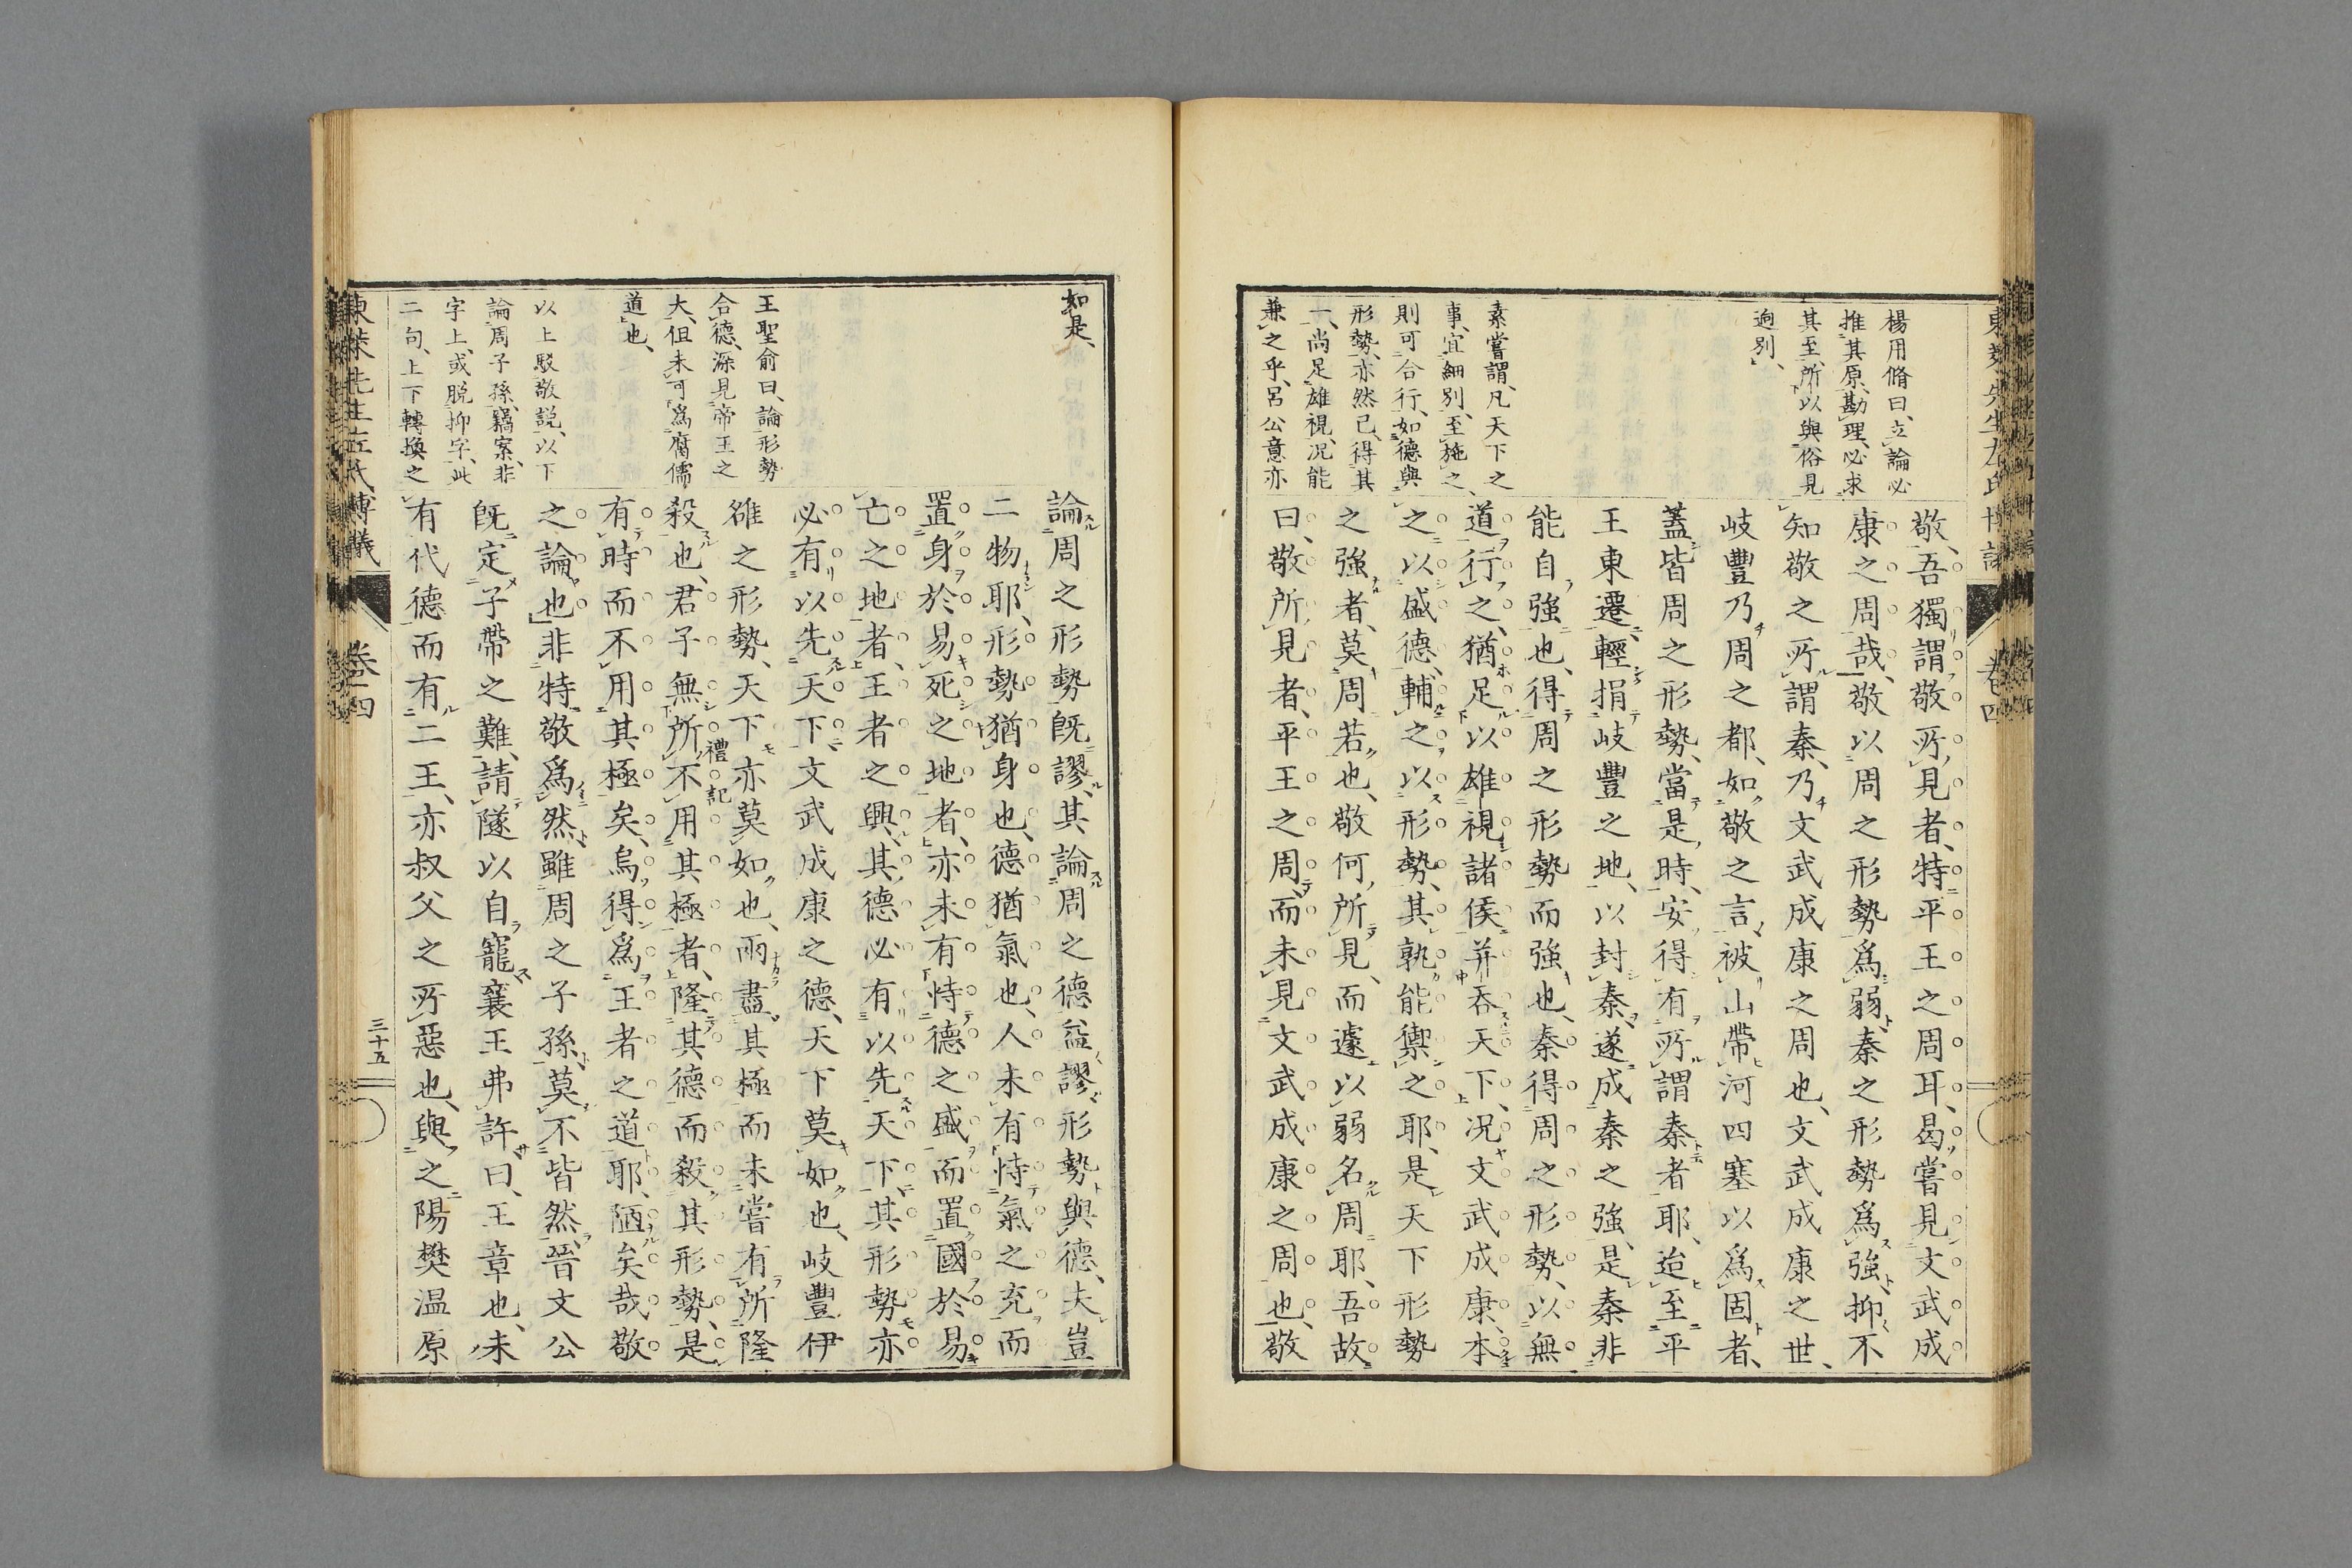 楊用脩曰、立論必
推其原、勘理、必求
其至、所以與俗見
逈別、
素嘗謂、凡天下之
事、宜細別、至施之、
則可合行、如德與
形勢、亦然已、得其
一、尚足雄視、况能
兼之乎、呂公意亦
敬、吾獨謂敬所見者、特平王之周耳、曷嘗見文武成
康之周哉、敬以周之形勢爲弱、秦之形勢爲強、抑不
知敬之所謂秦、乃文武成康之周也、文武成康之世、
岐豐乃周之都、如敬之言、被山帶河四塞以爲固者、
蓋皆周之形勢、當是時、安得有所謂秦者耶、迨至平
王東遷、輕捐岐豐之地、以封秦、遂成秦之強、是秦非
能自強也、得周之形勢而強也、秦得周之形勢、以無
道行之、猶足以雄視諸侯并吞天下、况文武成康、本
之以盛德、輔之以形勢、其孰能禦之耶、是天下形勢
之強者、莫周若也、敬何所見、而遽以弱名周耶、吾故
曰、敬所見者、平王之周、而未見文武成康之周也、敬
如是、
王聖俞曰、論形勢
合德、深見帝王之
大、但未可爲腐儒
道也、
以上駁敬説、以下
論周子孫、竊案、非
字上、或脱抑字、此
二句、上下轉換之
論周之形勢既謬、其論周之德益謬、形勢與德、夫豈
二物耶、形勢猶身也、德猶氣也、人未有恃氣之充、而
置身於易死之地者、亦未有恃德之盛、而置國於易
亡之地者、王者之興、其德必有以先天下、其形勢亦
必有以先天下、文武成康之德、天下莫如也、岐豐伊
雒之形勢、天下亦莫如也、兩盡其極而未嘗有所隆
殺也、君子無所不用其極者、隆其德而殺其形勢、是
禮記
有時而不用其極矣、烏得爲王者之道耶、陋矣哉敬
之論也、非特敬爲然、雖周之子孫、莫不皆然、晉文公
既定子帶之難、請隧以自寵、襄王弗許曰、王章也、未
有代德而有二王、亦叔父之所惡也、與之陽樊温原
東萊先生左氏博議
卷四
三十五